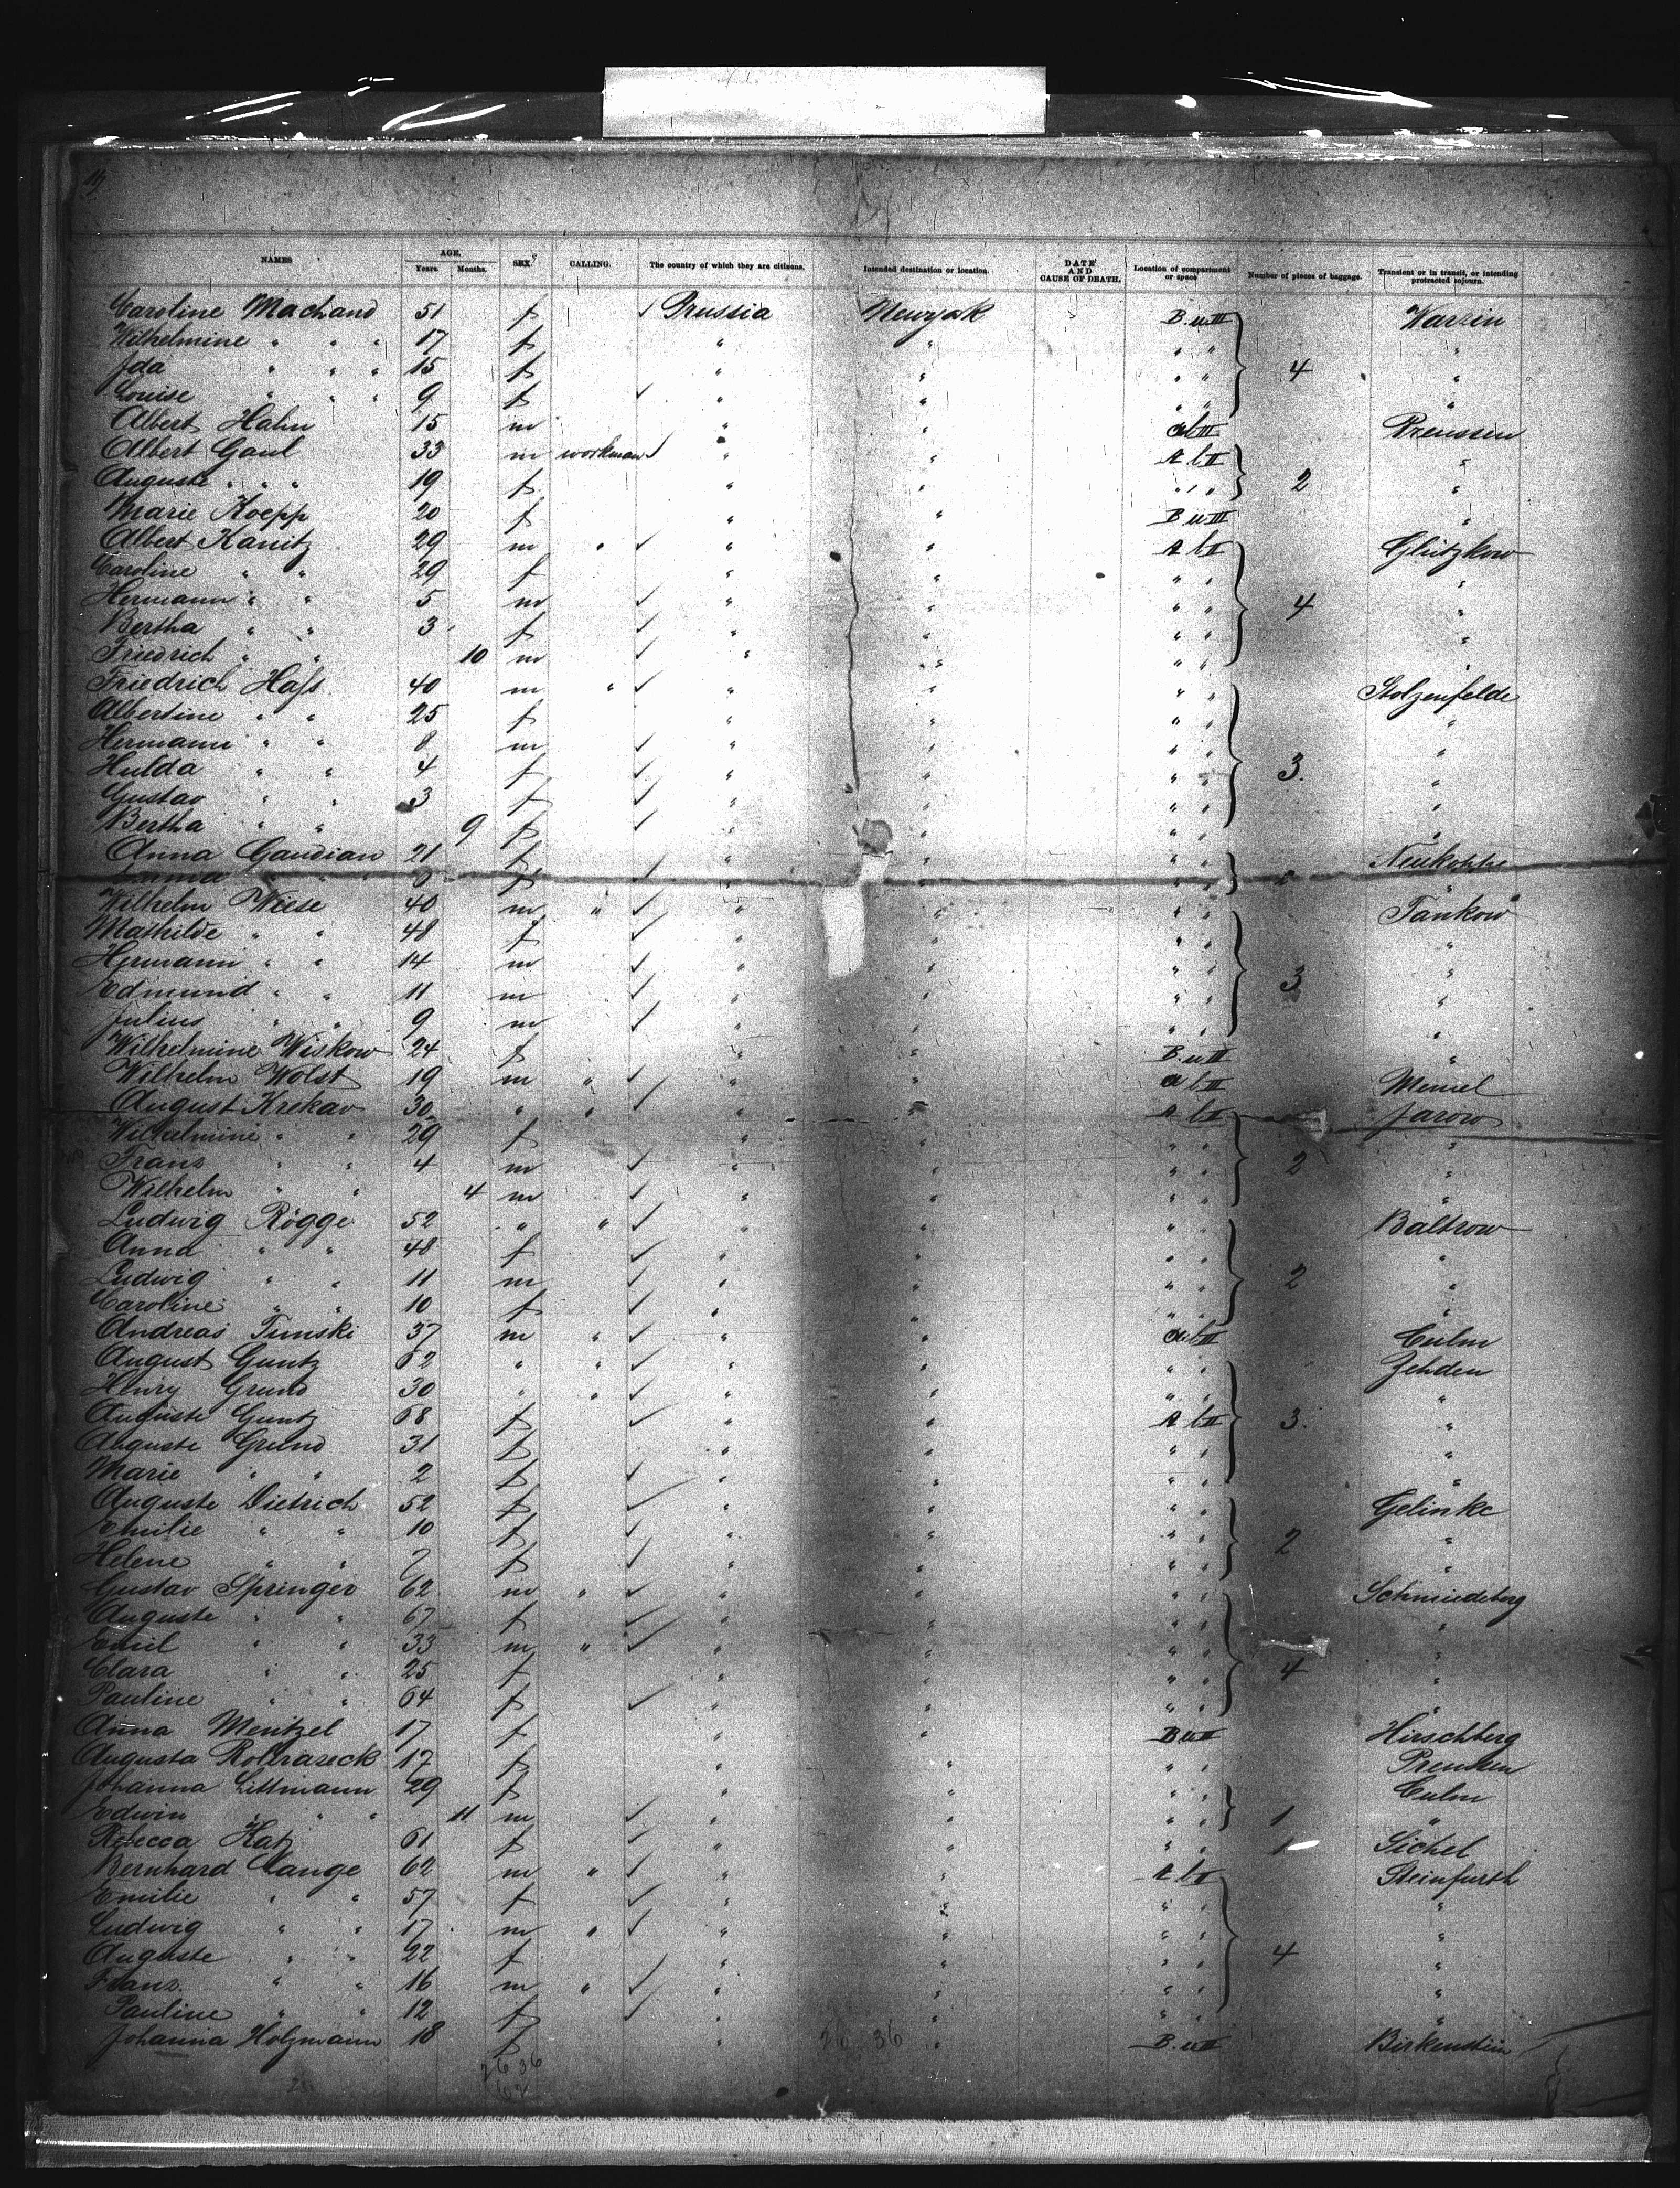 NAMES AGE. Years. Months. SEX. CALLING. The country of which they are citizens. Intended destination or location. DATE AND CAUSE OF DEATH. Location of compartment or space Number of pieces of baggage. Transient or in transit, or intending protracted sojourn.
Caroline Machand 51 f ✓ Prussia Newyork B.u.III Warzin
Wilhelmine " " " 17 f " " " " "
Ida " " " 15 f " " " " 4 "
Louise " " " 9 f ✓ " " " " "
Albert Hahn 15 m " " a b III Preussen
Albert Gaul 33 m workman ✓ " " A b II "
Auguste " " " 19 f " " " " " 2 "
Marie Koepp 20 f " " B u III "
Albert Kanitz 29 m " ✓ " " A b II Glützkow
Caroline " " 29 f " " " " "
Hermann " " 5 m ✓ " " " " 4 "
Bertha " " 3 f ✓ " " " " "
Friedrich " " 10 m ✓ " " " " "
Friedrich Hass 40 m " ✓ " " " " Stolzenfelde
Albertine " " 25 f " " " " "
Hermann " " 8 m ✓ " " " " "
Hulda " " 4 f ✓ " " " " 3. "
Gustav " " 3 f ✓ " " " " "
Bertha " " 9 f ✓ " " " " "
Anna Gaudian 21 f ✓ " " " "
" " f " " " " "
Wilhelm Wiese 40 m " ✓ " " " " Tankow
Mathilde " " 48 f ✓ " " " " "
Hermann " " 14 m ✓ " " " " "
Edmund " " 11 m ✓ " " " " 3 "
Julius " " 9 m ✓ " " " " "
Wilhelmine Wiskow 24 f " " B. u. II "
Wilhelm Wolst 19 m " ✓ " " a b II Memel
August Krekav 30 " " ✓ " " A b II Jarow
Wilhelmine " " 29 f " " " " "
Franz " " 4 m ✓ " " " " 2 "
Wilhelm " " 4 m ✓ " " " " "
Ludwig Rögge 52 " " ✓ " " " " Baltrow
Anna " " 48 f ✓ " " " " "
Ludwig " " 11 m ✓ " " " " 2 "
Caroline " " 10 f ✓ " " " " "
Andreas Tunski 37 m " ✓ " " a b III Culm
August Guntz 62 " " ✓ " " " " Zehden
Henry Grund 30 " " ✓ " " " " "
Auguste Guntz 68 f ✓ " " A b II 3. "
Auguste Grund 31 f " " " " "
Marie " " 2 f ✓ " " " " "
Auguste Dietrich 52 f ✓ " " " " Gelinke
Emilie " " 10 f ✓ " " " " 2 "
Helene " " 7 f ✓ " " " " "
Gustav Springer 62 m " ✓ " " " " Schmiedeberg
Auguste " " 67 f ✓ " " " " "
Emil " " 33 m " ✓ " " " " "
Clara " " 25 f " " " " 4 "
Pauline " " 64 f ✓ " " " " "
Anna Mentzel 17 f " " B u II Hirschberg
Augusta 17 f " " " " Preussen
Johanna Littmann 29 f " " " " Culm
Edwin " " " 11 m ✓ " " " " 1 "
Rebecca Katz 61 f ✓ " " " " 1 Sichel
Bernhard Lange 62 m " ✓ " " A b II Steinfurth
Emilie " " 57 f ✓ " " " " "
Ludwig " " 17 m " ✓ " " " " "
Auguste " " 22 f ✓ " " " " 4 "
Franz " " 16 m " ✓ " " " " "
Pauline " " 12 f ✓ " " " " "
Johanna Holzmann 18 f " " B. u II Birkenstein
26 36
26 36
62